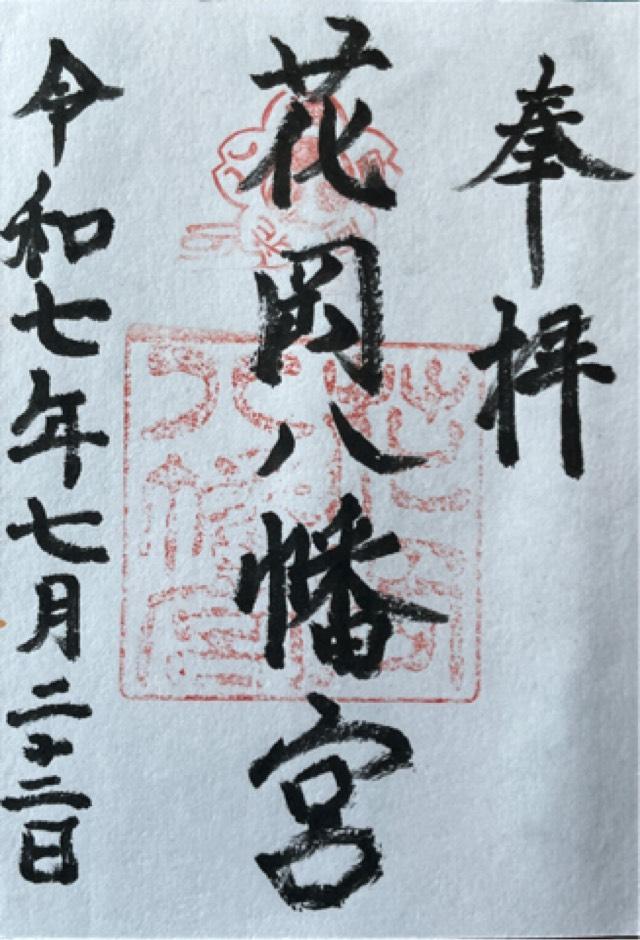 奉拝
花岡八幡宮
令和七年七月二十二日